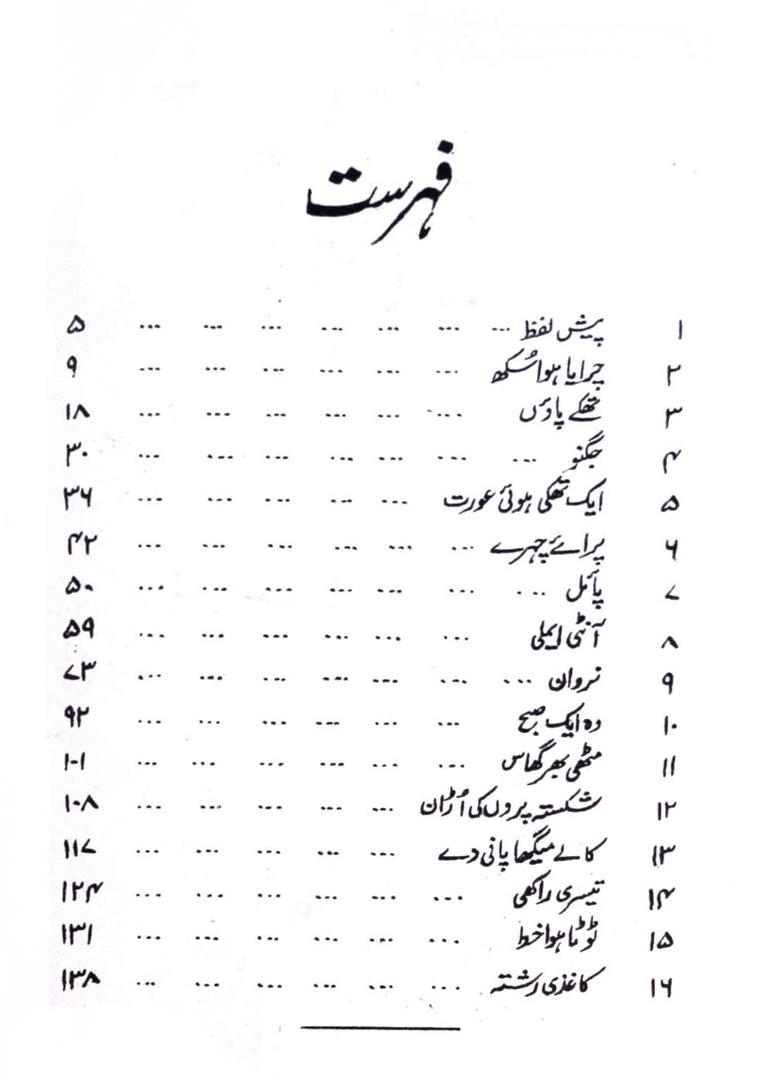 فہرست
۱ پیش لفظ ... ... ... ... ... ... ... ۵
۲ چرایا ہوا سُکھ ... ... ... ... ... ... ۹
۳ تھکے پاؤں ... ... ... ... ... ... ۱۸
۴ جگنو ... ... ... ... ... ... ... ۳۰
۵ ایک تھکی ہوئی عورت ... ... ... ... ... ۳۶
۶ پرائے چہرے ... ... ... ... ... ... ۴۲
۷ پائل ... ... ... ... ... ... ... ۵۰
۸ آنٹی ایملی ... ... ... ... ... ... ۵۹
۹ نروان ... ... ... ... ... ... ... ۷۳
۱۰ وہ ایک صبح ... ... ... ... ... ... ۹۲
۱۱ مٹھی بھر گھاس ... ... ... ... ... ... ۱۰۱
۱۲ شکستہ پروں کی اُڑان ... ... ... ... ... ۱۰۸
۱۳ کالے میگھا پانی دے ... ... ... ... ... ۱۱۷
۱۴ تیسری راکھی ... ... ... ... ... ... ۱۲۴
۱۵ ٹوٹا ہوا خط ... ... ... ... ... ... ۱۳۱
۱۶ کاغذی رشتہ ... ... ... ... ... ... ۱۳۸